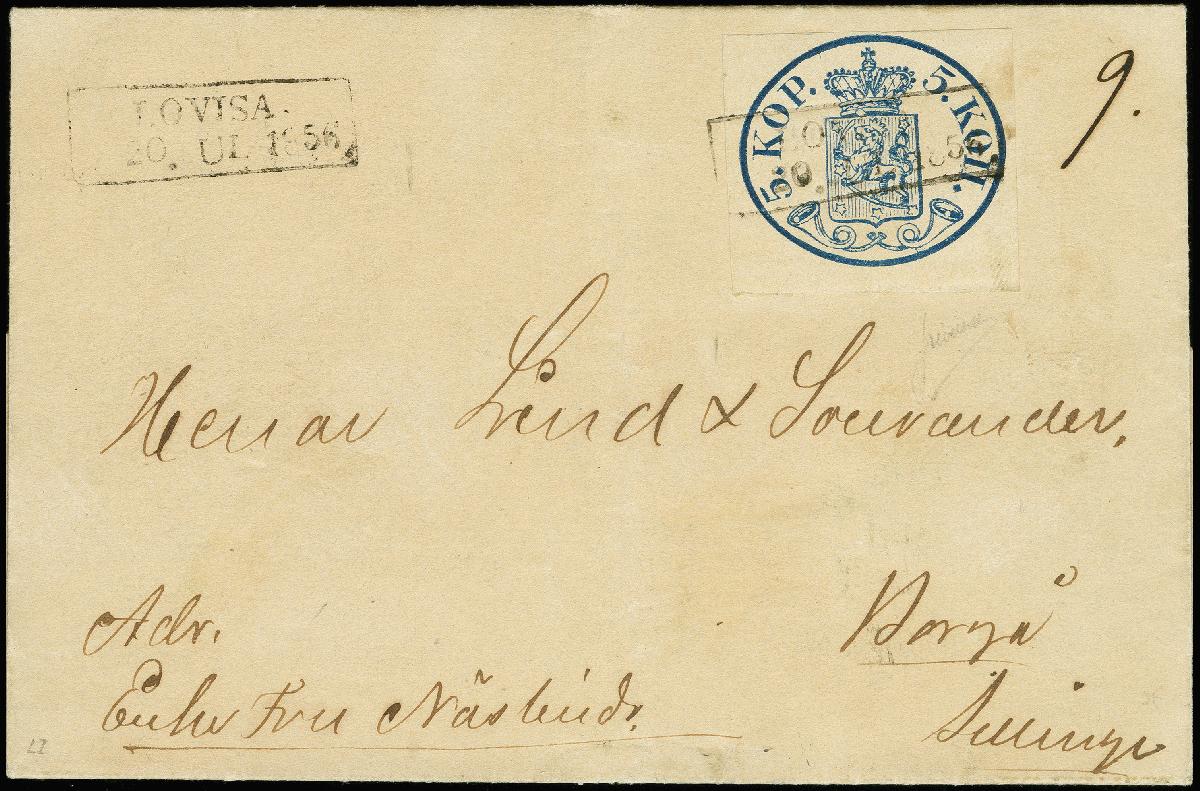 LOVISA.
20. UL 1856
5. KOP. 5. КОП.
20. 1856
9.
Herrar Lind & Sourander,
Adr.
Enke Fru Näslind.
Borgå
Sillinge